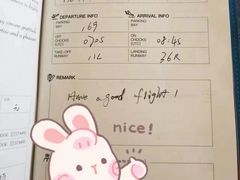 DEPARTURE INFO ARRIVAL INFO
PARKING BAY 169 PARKING BAY
OFF CHOCKS (UTC) 0705 ON CHOCKS (UTC) 0845
TAKE-OFF RUNWAY LANDING RUNWAY 36R
REMARK
Have a good flight!
nice!